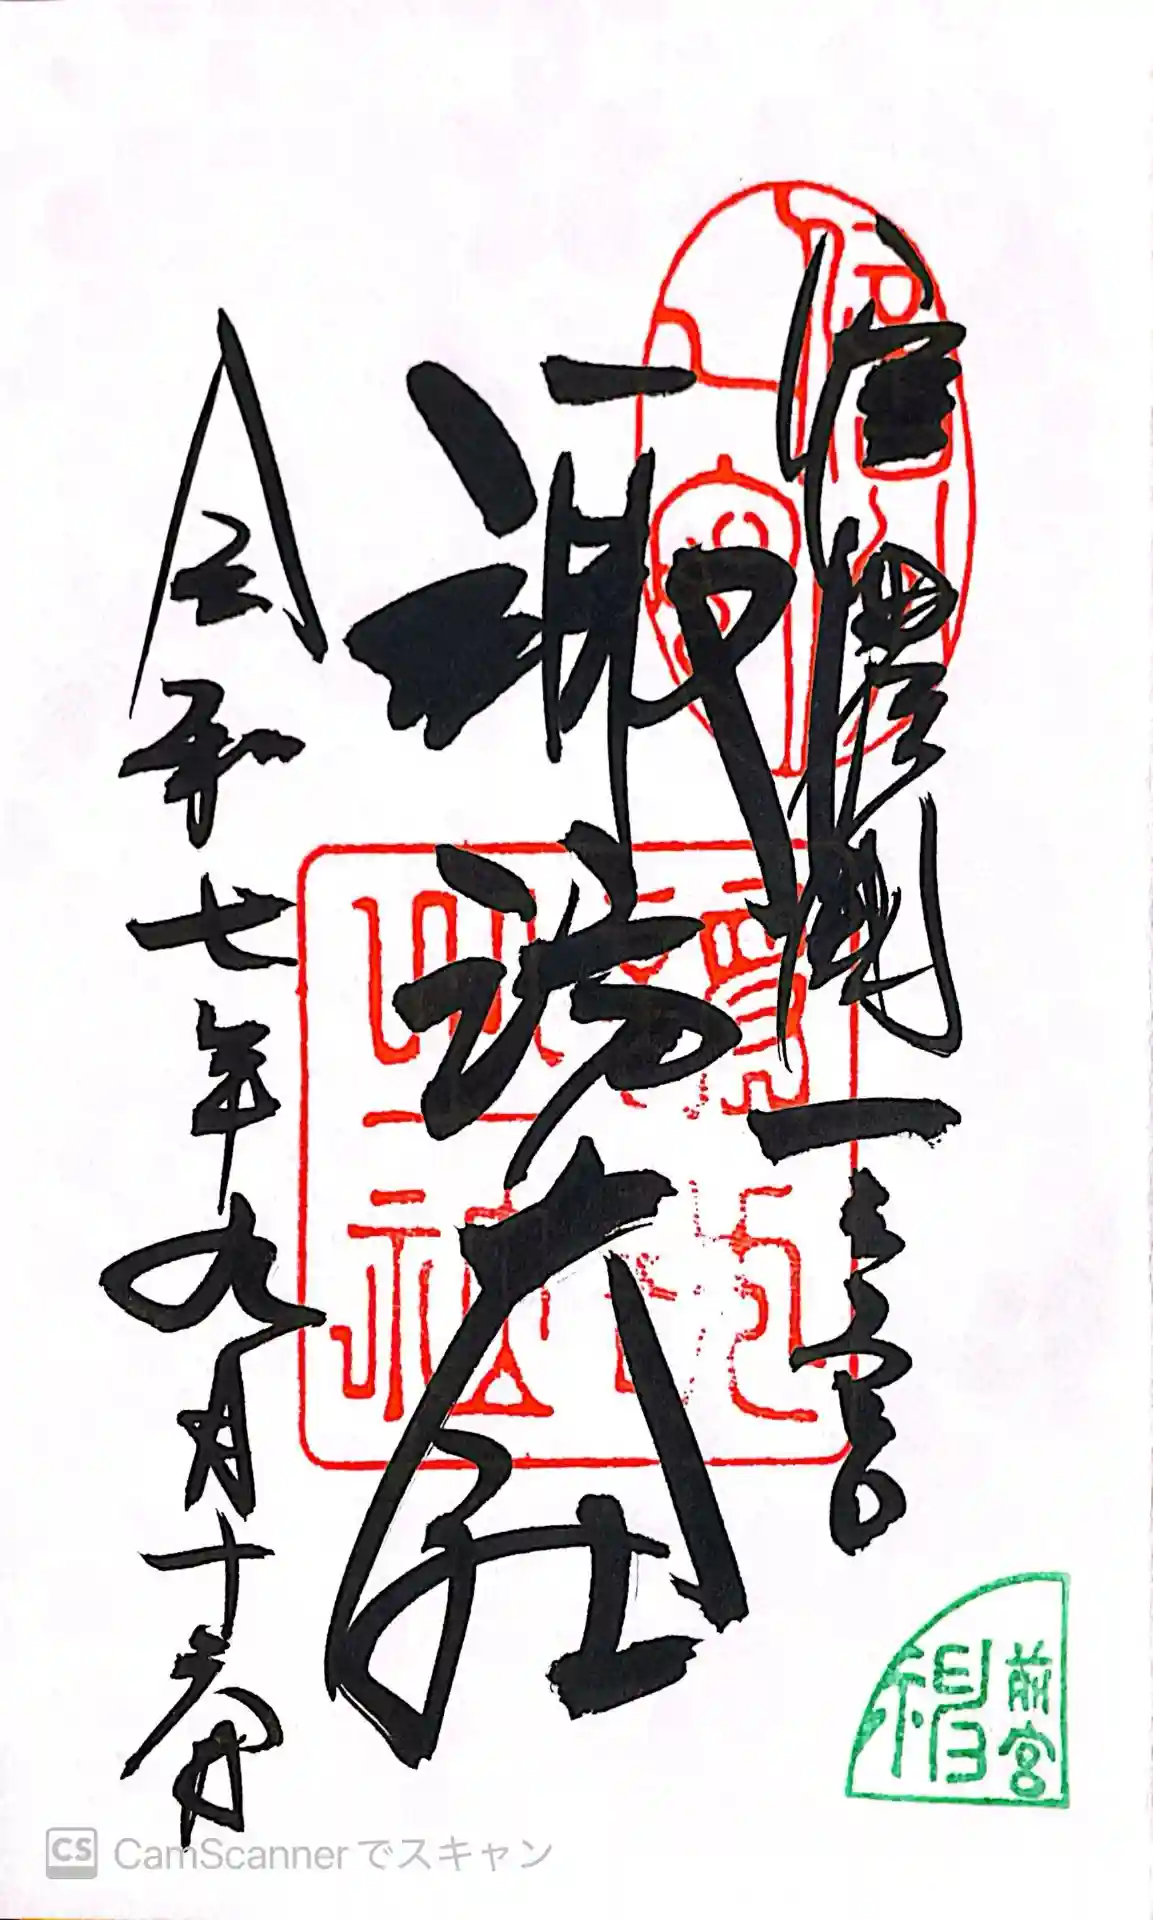 信濃國一之宮
諏訪大社
令和七年九月十六日
前宮
CS CamScannerでスキャン